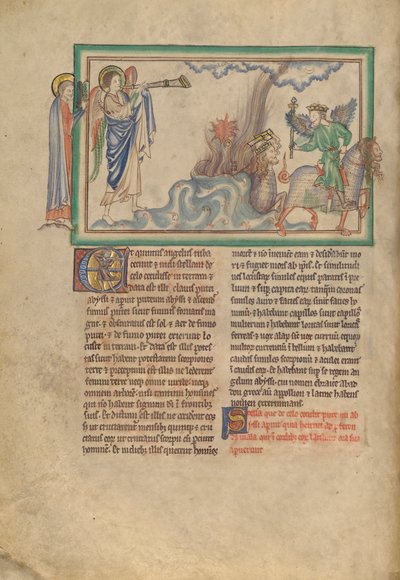 Et quintus angelus tuba
cecinit & uidi stellam de
celo cecidisse in terram &
data est illi clauis putei
abyssi & apuit puteum abyssi & ascendit
fumus putei sicut fumus fornacis ma
gne & obscuratus est sol & aer de fumo
putei & de fumo putei exierunt lo
custe in terram & data est illis potes
tas sicut habent potestatem scorpiones
terre & preceptum est illis ne lederent
fenum terre neq omne uiride neq
omnem arborem nisi tantum homines
qui non habent signum in frontibus
suis. Et dictum est illis ne occiderent eos
s ut cruciarent mensibus quinq & cru
ciatus eorum ut cruciatus scorpii cum percutit
hominem. Et in diebus illis querent homines
mortem & non inuenient eam & desiderabunt mo
ri & fugiet mors ab ipsis. Et similitudines
locustarum similes equis paratis in prelium
& super capita earum tanquam corone
similes auro & facies earum sicut facies ho
minum & habebant capillos sicut capillos
mulierum & habebant loricas sicut loricas
ferreas & uox alarum sicut uox curruum equorum
multorum currentium in bellum & habebant
caudas similes scorpionum & aculei erant
in caudis earum & habebant super se regem an
gelum abyssi cui nomen ebraice abad
don grece autem appollion & latine habens
nomen exterminans.
Stella que de celo cecidit